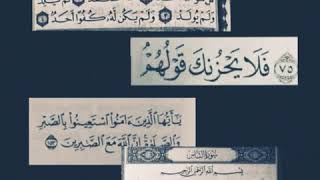 وَلَمْ يُولَدْ ۝٣ وَلَمْ يَكُن لَّهُۥ كُفُوًا أَحَدٌۢ ۝٤
۝٧٥ فَلَا يَحْزُنكَ قَوْلُهُمْ
يَٰٓأَيُّهَا ٱلَّذِينَ ءَامَنُوا۟ ٱسْتَعِينُوا۟ بِٱلصَّبْرِ
وَٱلصَّلَوٰةِ إِنَّ ٱللَّهَ مَعَ ٱلصَّٰبِرِينَ ۝١٥٣
سُورَةُ النَّاسِ
بِسْمِ ٱللَّهِ ٱلرَّحْمَٰنِ ٱلرَّحِيمِ